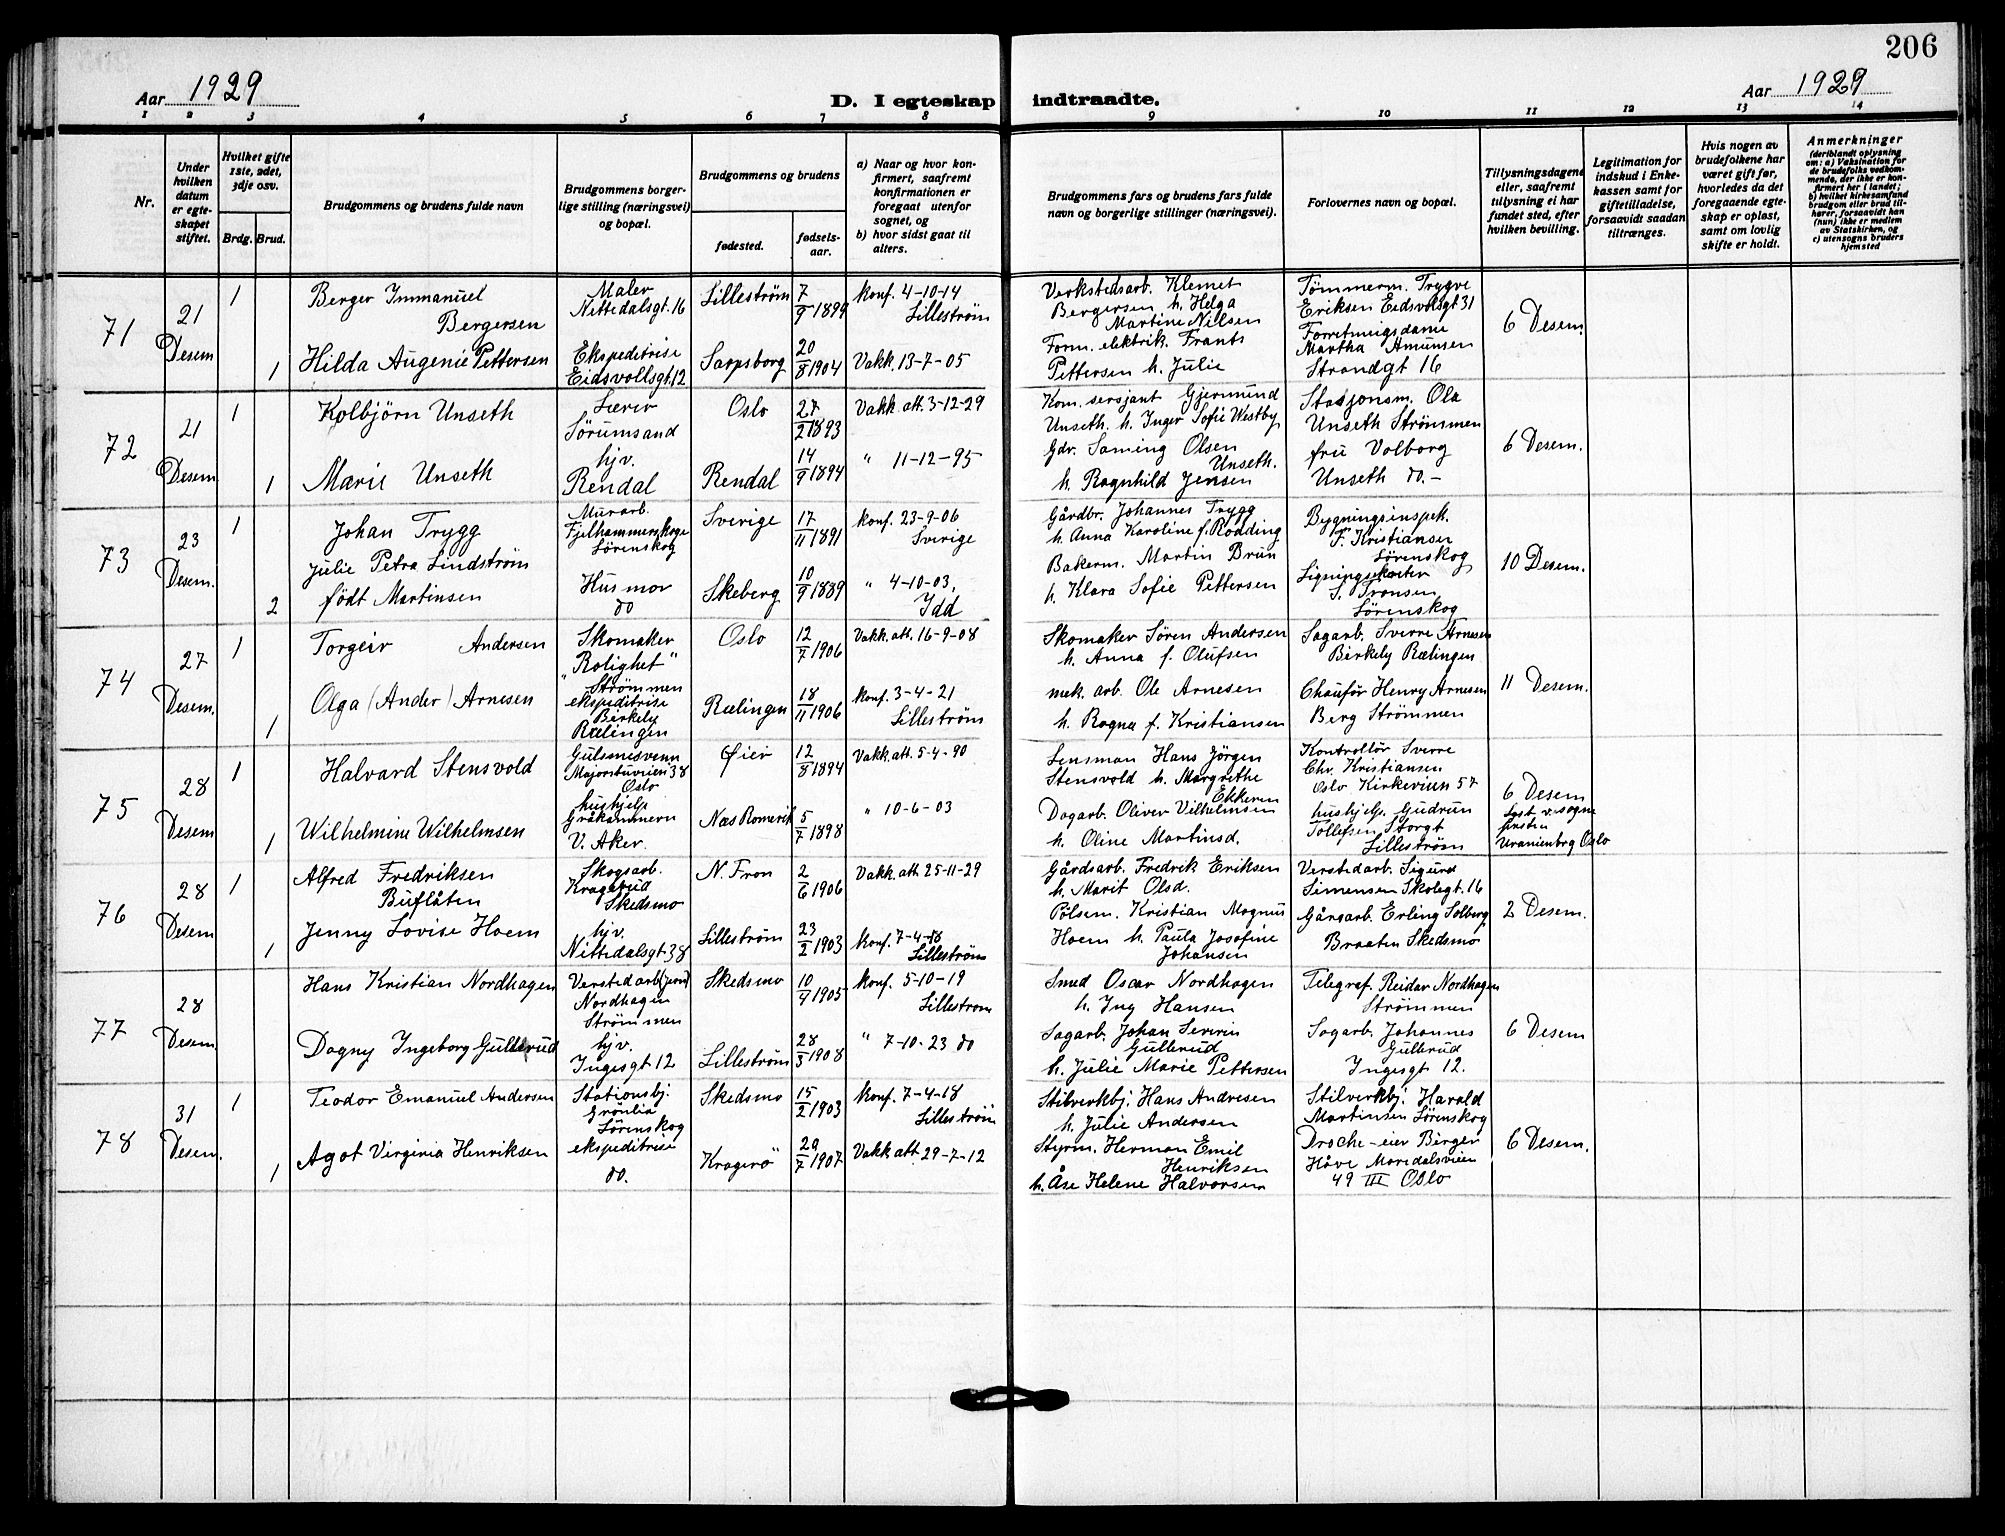 206
Aar 1929
D. I egteskap indtraadte.
Aar 1929
1 2 3 4 5 6 7 8 9 10 11 12 13 14
Nr.
Under hvilken datum er egteskapet stiftet.
Hvilket gifte 1ste, 2det, 3dje osv.
Brdg. Brud.
Brudgommens og brudens fulde navn
Brudgommens borgerlige stilling (næringsvei) og bopæl.
Brudgommens og brudens
fødested.
fødselsaar.
a) Naar og hvor konfirmert, saafremt konfirmationen er foregaat utenfor sognet, og
b) hvor sidst gaat til alters.
Brudgommens fars og brudens fars fulde navn og borgerlige stillinger (næringsvei).
Forlovernes navn og bopæl.
Tillysningsdagene eller, saafremt tillysning ei har fundet sted, efter hvilken bevilling.
Legitimation for indskud i Enkekassen samt for giftetilladelse, forsaavidt saadan tiltrænges.
Hvis nogen av brudefolkene har været gift før, hvorledes da det foregaaende egteskap er opløst, samt om lovlig skifte er holdt.
Anmerkninger
(deriblandt oplysning om: a) Vaksination for de brudefolks vedkommende, der ikke er konfirmert her i landet; b) hvilket kirkesamfund brudgom eller brud tilhører, forsaavidt han (hun) ikke er medlem av Statskirken, og c) utensogns bruders hjemsted
71
21 Desem
1
Berger Immanuel
Bergersen
Maler
Nittedalsgt. 16
Lilleström
7/9 1899
konf. 4-10-14
Lilleström
Verkstedsarb. Klemet
Bergersen h. Helga
Martine Nilsen
Tömmerm. Trygve
Eriksen Eidsvolsgt 31
6 Desem
1
Hilda Augenie Pettersen
Ekspeditrise
Eidsvollsgt. 12
Sarpsborg
20/8 1904
Vakk. 13-7-05
Form. elektrik. Frants
Pettersen h. Julie
Forretningsdame
Martha Amunsen
Strandgt 16
72
21 Desem.
1
Kolbjörn Unseth
Lærer
Sörumsand
Oslo
27/2 1893
Vakk att. 3-12-29
Kom. sersjant Gjermund
Unseth. h. Inger Sofie Westby
Stasjonsm. Ola
Unseth Strömmen
6 Desem.
1
Marie Unseth
hjv.
Rendal
Rendal
14/9 1894
" 11-12-95
Gdr. Saming Olsen
Unseth.
h. Ragnhild Jensen
fru Volborg
Unseth do.-
73
23 Desem.
1
Johan Trygg
Murarb.
Fjelhammerskoge
Lörenskog
Sverige
17/11 1891
konf. 23-9-06
Sverige
Gårdbr. Johannes Trygg
h. Anna Karoline f. Rodding
Bygningsinspek.
F. Kristiansen
Lörenskog
10 Desem.
2
Julie Petra Lindström
födt Martinsen
Husmor
do
Skeberg
10/9 1889
" 4-10-03,
Idd
Bakerm. Martin Brun
h. Klara Sofie Pettersen
S. Tronsen
Lörenskog
74
27 Desem.
1
Torgeir Andersen
Skomaker
"Rolighet"
Strömmen
Oslo
12/7 1906
Vakk. att. 16-9-08
Skomaker Sören Andersen
h. Anna f. Olufsen
Sagarb. Sverre Arnesen
Birkely Rælingen
11 Desem.
1
Olga (Ander) Arnesen
ekspeditrise
Birkely
Rælingen
Rælingen
18/11 1906
konf. 3-4-21
Lilleström
mek. arb. Ole Arnesen
h. Ragna f. Kristiansen
Chauför Henry Arnesen
Berg Strömmen
75
28 Desem
1
Halvard Stensvold
Gulsmesvenn
Majorstuvien 38
Oslo
Öier
12/8 1894
Vakk. att. 5-4-90
Lensman Hans Jörgen
Stensvold h. Margrethe
Ekkeren
Kontrollör Sverre
Chr. Kristiansen
Oslo Kirkeveien 57
6 Desem
Lyst v. sogne
presten
Uranienbrg Oslo
1
Wilhelmine Wilhelmsen
hushjelp
Gråkammern
V. Aker.
Næs Romerik
5/7 1898
" 10-6-03
Dagarb. Oliver Vilhelmsen
h. Oline Martinsd.
hushjelp. Gudrun
Tollefsen Storgt
Lilleström
76
28 Desem
1
Alfred Fredriksen
Buflåten
Skogsarb.
Kragerud
Skedsmo
N. Fron
2/6 1906
Vakk. att 25-11-29
Gårdsarb. Fredrik Eriksen
h. Marit Olsd.
Verstedarb. Sigurd
Simensen Skolegt. 16
2 Desem.
1
Jenny Lovise Hoem
hjv.
Nittedalsgt. 38
Lilleström
23/2 1903
konf. 7-4-18
Lilleström
Pölsem. Kristian Magnus
Hoem h. Paula Josefine
Johansen
Gårsarb. Erling Solberg
Braaten Skedsmo
77
28 Desem.
Hans Kristian Nordhagen
Verstedarb (jern)
Nordhagen
Strömmen
Skedsmo
10/4 1905
konf. 5-10-19
Lillestrom
Smed Oscar Nordhagen
h. Ing Hansen
Telegraf. Reidar Nordhagen
Strömmen
6 Desem
Dagny Ingeborg Gullerud
hjv.
Ingesgt 12
Lilleström
28/3 1908
" 7-10-23 do
Sagarb. Johan Severin
Gullerud
h. Julie Marie Pettersen
Sagarb. Johannes
Gullerud
Ingesgt 12.
78
31 Desem.
1
Teodor Emanuel Andersen
Stationsbj.
Grönlia
Lörenskog
Skedsmo
15/2 1903
konf. 7-4-18
Lilleström
Stilverkbj. Hans Andresen
h. Julie Andersen
Stilverkbj. Harald
Martinsen Lörenskog
6 Desem.
1
Agot Virginia Henriksen
ekspeditrise
do.
Kragerö
29/7 1907
Vakk att 29-7-12
Styrm. Herman Emil
Henriksen
h. Åse Helene Halvorsen
Drosche-eier Birger
Håve Maridalsveien
49 III Oslo